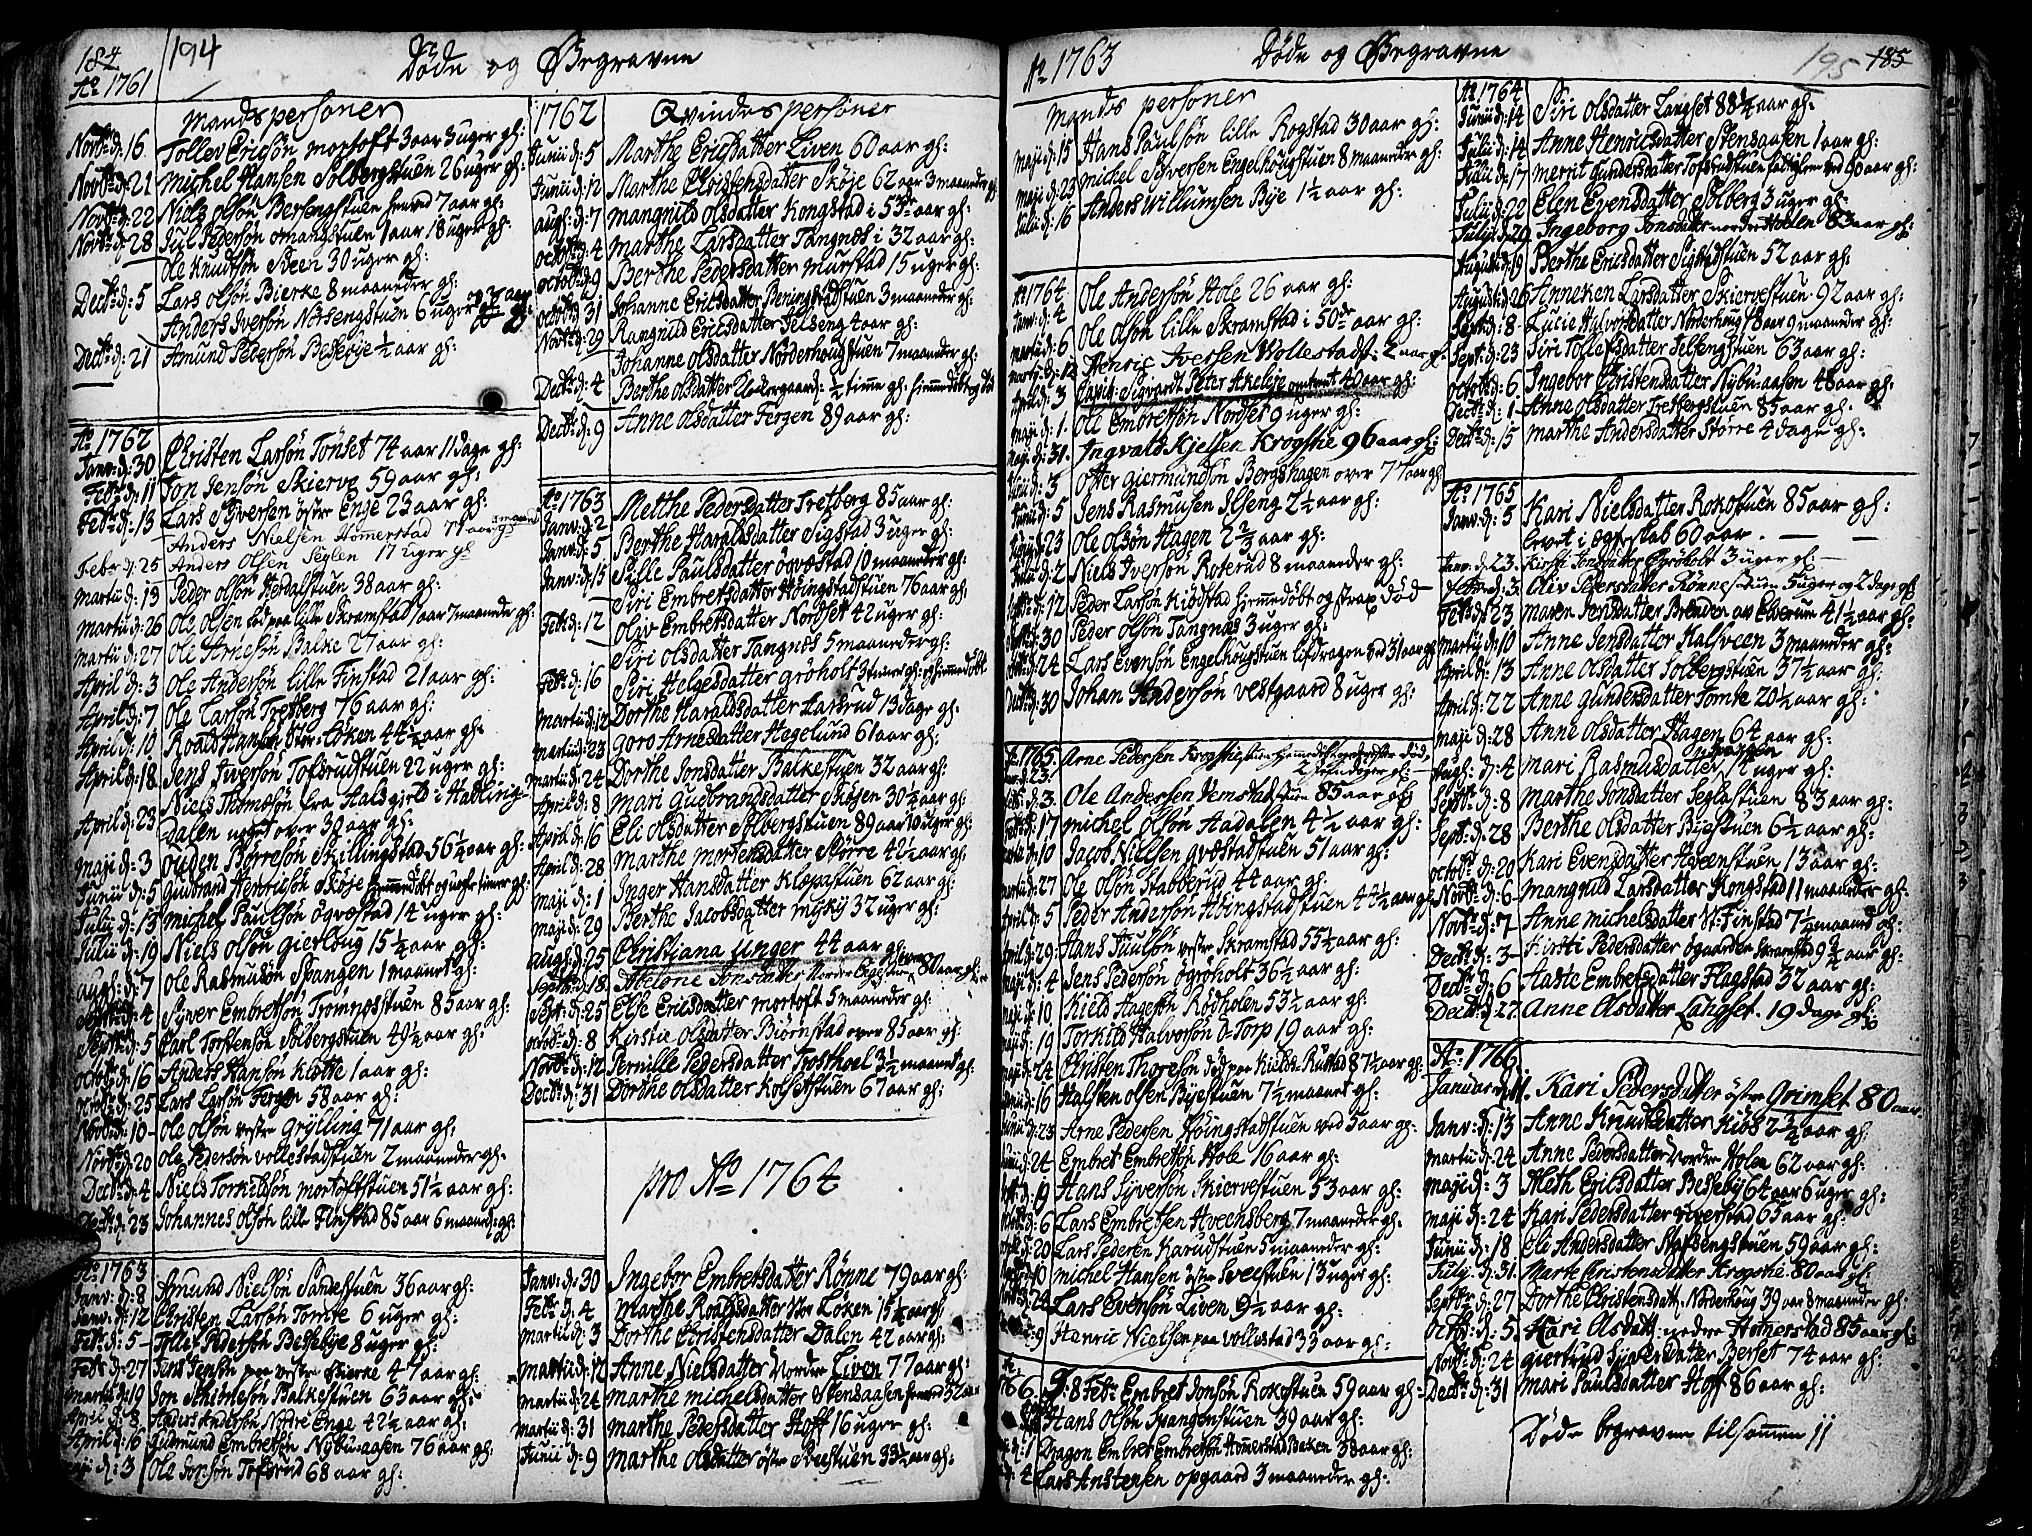 184
194
Døde og Begravne
Aº 1761
Mandspersoner
Novb: d: 16 Tollev Ericsøn Mortoft 3 aar 3 uger gl:
Novb: d: 21 Michel Hansen Solbergstuen 26 uger gl:
Novb: d: 22 Niels Olsøn Bersengstuen henved 7 aar gl:
Novb: d: 28 Jul Pedersøn Omangstuen 1 aar 18 uger gl:
Ole Knudsøn Sveen 30 uger gl:
Decb: d: 5 Lars Olsøn Bierke 8 maaneder gl:
Anders Iversøn Norsengstuen 6 uger og 7 aar gl:
Decb: d: 21 Amund Pedersøn Beskebye ½ aar gl:
Aº 1762
Janv: d: 30 Christen Larsøn Tønset 74 aar 11 dage gl:
Feb: d: 11 Jon Jensøn Skierve 59 aar gl:
Feb: d: 13 Lars Syversen østre Enge 23 aar gl:
Anders Nielsen Hommerstad 71 aar 3 maaned gl
Febr d: 25 Anders Olsen Seglen 17 uger gl
Martii d: 13 Peder Olsøn Herdalstuen 38 aar gl:
Martii d: 26 Ole Olsen fød paa lille Skramstad 1 aar 7 maaneder gl:
Martii d: 27 Ole Arnesøn Balke 27 aar gl:
April d: 3 Ole Andersøn lille Finstad 21 aar gl:
April d: 7 Ole Larsøn Tretberg 76 aar gl:
April d: 10 Roald Hansøn Str: Løken 44½ aar gl:
April d: 18 Jens Iversøn Tofsrudstuen 22 uger gl:
Niels Thomesøn fra Hals gield i Hadling-
April d: 23 Dalen noget over 30 aar gl:
Maji d: 3 Outen Børresøn Skillingstad 56½ aar gl:
Junii d: 5 Gudbrand Henricsøn Skøje hiemmedøbt og nogle timer gl:
Julii d: 13 Michel Paulsøn Ogvestad 14 uger gl:
Julii d: 19 Niels Olsøn Gierloug 15½ aar gl:
Augl: d: 7 Ole Rasmusøn Spangen 1 maaned gl:
Septb: d: 4 Syver Embretsøn Trompsstuen 85 aar gl:
Septb: d: 5 Carl Torstensøn Solbergstuen 49½ aar gl:
Octob: d: 16 Anders Hansøn Klotte 1 aar gl:
Octob: d: 25 Lars Larsøn Fergen 58 aar gl:
Novb: d: 10 Ole Olsøn vestre Grylling 71 aar gl:
Novb: d: 20 Ole Pedersøn Vollestadstuen 2 maaneder gl:
Decb: d: 4 Niels Torkildsøn Mortoftstuen 51½ aar gl:
Decb: d: 23 Johannes Olsøn lille Finstad 85 aar 6 maaned: gl:
Aº 1763
Janv: d: 8 Amund Nielsøn Sandestuen 36 aar gl:
Janv: d: 12 Christen Larsøn Tomte 6 uger gl:
Feb: d: 5 Tollef Pedersøn Beskebye 8 uger gl:
Feb: d: 27 Jens Jensøn paa vestre Bierke 47 aar gl:
Martii d: 19 Jon Skiølesøn Balkestuen 63 aar gl:
April d: 8 Anders Andersøn Nordre Enge 42½ aar gl:
April d: 16 Gudmund Embretsøn Nybu-aasen 76 aar gl:
Maji d: 3 Ole Jonsøn Tofsrud 68 aar gl:
1762
Qvindespersoner
Junii d: 5 Marthe Ericsdatter Liven 60 aar gl:
Junii d: 12 Marthe Christensdatter Skøje 62 aar 3 maaneder gl
Augl: d: 7 Mangnild Olsdatter Kongstad i 53de aar gl:
Octob: d: 4 Marthe Larsdatter Tangnæs i 32 aar gl:
Octob: d: 9 Berthe Pedersdatter Murstad 15 uger gl:
Octob: d: 31 Johanne Ericsdatter Beningstadstuen 3 maaneder gl:
Novb: d: 29 Rangnild Ericsdatter Jelseng 4 aar gl:
Johanne Olsdatter Norderhougstuen 7 maaneder gl:
Decb: d: 4 Berthe Olsdatter Undergaard: ½ time gl: hiemmedøbt og død
Decb: d: 9 Anne Olsdatter Fergen 89 aar gl:
Aº 1763
Janv: d: 2 Metthe Pedersdatter Tretberg 85 aar gl:
Janv: d: 5 Berthe Haraldsdatter Sigstad 3 uger gl:
Janv: d: 15 Sille Paulsdatter Ogvestad 10 maaneder gl:
Siri Embretsdatter Høingstadstuen 76 aar gl:
Feb: d: 12 Oliv Embretsdatter Nordset 42 uger gl:
Siri Olsdatter Tangnæs 5 maaneder gl:
Feb: d: 16 Siri Helgesdatter Grøholt 3 timer gl: hiemmedøbt
Martii d: 12 Dorthe Haraldsdatter Aasrud 13 dage gl:
Martii d: 23 Goro Arnesdatter Hogelund 61 aar gl:
Martii d: 24 Dorthe Jonsdatter Balkestuen 32 aar gl:
April d: 8 Mari Gudbransdatter Skøjen 30½ aar gl:
April d: 16 Eli Olsdatter Solbergstuen 89 aar 10 uger gl:
April d: 28 Marthe Mortensdatter Større 42½ aar gl:
Maji d: 1 Inger Hansdatter Kloppstuen 62 aar gl:
Maji d: 29 Berthe Jacobsdatter Myhr 32 uger gl:
Augl: d: 25 Christiana Unger 44 aar gl:
Septb: d: 18 Helene Jonsdatter Nordre 80 aar gl:
Sept: d: 25 Else Ericsdatter Mortoft 5 maaneder gl:
Octob: d: 8 Kirstie Olsdatter Biørnstad over 85 aar gl:
Novb: d: 12 Pernille Pedersdatter Trosthoel 3½ maaned gl:
Decb: d: 31 Dorthe Olsdatter Kolsetstuen 67 aar gl:
pro Aº 1764
Janv: d: 30 Ingebor Embretsdatter Rønne 79 aar gl:
Feb: d: 4 Marthe Roaldsdatter Str Løken 15½ aar gl:
Martii d: 3 Dorthe Christensdatter Dalen 42 aar gl:
Martii d: 12 Anne Nielsdatter Nordre Liven 77 aar gl:
Martii d: 24 Marthe Michelsdatter Stensaasen henved 32 aar
Martii d: 31 Marthe Pedersdatter Hoff 16 uger gl:
Junii d: 9 Marthe Olsdatter østre Sveestuen 33½ aar gl:
Aº 1763
Døde og Begravne
195
185
Mandspersoner
Maji d: 15 Hans Paulsøn lille Rogstad 30 aar gl:
Maji d: 23 Michel Syversen Engelhougstuen 8 maaneder gl:
Julii d: 16 Anders Willumsen Bye 1½ aar gl:
Aº 1764
Janv: d: 4 Ole Andersøn Hole 26 aar gl:
Martii d: 6 Ole Olsøn lille Skramstad i 50de aar gl:
Martii d: 12 Henric Iversen Wollestad: 2 aar gl
April d: 3 Capit: Sigvardt Peter Akeleje omtrent 40 aar gl:
Maji d: 1 Ole Embretsøn Nordset 9 uger gl:
Maji d: 31 Ingvald Kjelsen Krogshe 96 aar gl:
Junii d: 3 Otter Giermundsøn Bergshagen over 77 aar gl
Junii d: 5 Jens Rasmusen Ilseng 2½ aar gl:
d: 23 Ole Olsøn Hagen 2¾ aar gl:
d: 2 Niels Iversøn Roterud 8 maaneder gl:
d: 12 Peder Larsøn Kiødstad hiemmedøbt og strax død
d: 30 Peder Olsøn Tangnæs 3 uger gl:
d: 24 Lars Evensøn Engelhougstuen lifdragon ved 31 aar gl
Decb: d: 30 Johan Andersøn Vestgaard 8 uger gl:
Aº 1765
d: 23 Arne Pedersen Krogshestuen død,
d: 3 Ole Andersen Jemstadstuen 85 aar gl
d: 17 Michel Olsøn Aadalen 4½ aar gl:
d: 10 Jacob Nielsen Gvestadstuen 51 aar gl:
d: 27 Ole Olsøn Stabberud 44 aar gl:
April d: 5 Peder Andersøn Høingstadstuen 42½ aar gl:
April d: 29 Hans Juulsøn vestre Skramstad 55½ aar gl:
Maji d: 4 Jens Pedersøn Ogrøholt 36½ aar gl:
Maji d: 10 Kield Hagesøn Rødholen 53½ aar gl:
Maji d: 19 Torkild Halvorsøn O-Torp 19 aar gl:
Maji d: 24 Christen Thoresøn død paa Kields-Rustad 87½ aar gl:
Junii d: 16 Halsten Olsen Byestuen 7½ maaned gl:
Junii d: 23 Arne Pedersen Høingstadstuen ved 5 aar gl:
d: 24 Embret Embretsøn Hole 16 aar gl:
d: 19 Hans Syversøn Skiervestuen 53 aar gl:
d: 6 Lars Embretsen Hveensberg 7 maaneder gl:
d: 20 Lars Pedersen Karudstuen 5 maaneder gl:
d: 10 Michel Hansen østre Sveestuen 13 uger gl:
d: 24 Lars Evensøn Liven 9½ aar gl:
d: 9 Henric Nielsen paa Vollestad 33 aar gl:
1766 d: 8 Feb: Embret Jonsøn Rokostuen 59 aar gl:
Hans Olsøn Spangenstuen 39 aar gl:
d: 1 Dragon Embret Embretsøn Hommerstadbaken 38 aar gl:
d: 4 Lars Anstensen Opgaard 3 maaneder gl:
Aº 1764
Junii d: 14 Siri Olsdatter Langset 88¼ aar gl:
Julii d: 14 Anne Henricsdatter Stensaasen 1 aar gl:
Julii d: 17 Merrit Gundersdatter Tofsrudstuen ved 90 aar gl:
Julii d: 22 Elen Evensdatter Solberg 3 uger gl:
Julii d: 29 Ingeborg Jonsdatter nordre Hoelen 83 aar gl:
Augusti d: 19 Berthe Ericsdatter Sigstadstuen 52 aar gl:
Augusti d: 26 Anneken Larsdatter Skiervestuen 92 aar gl:
Sept: d: 8 Lucie Halvorsdatter Norderhoug 18 aar 9 maaneder gl:
Sept: d: 23 Siri Tollefsdatter Jelsengstuen 63 aar gl:
Octob: d: 6 Ingebor Christensdatter Nybu-aasen 48 aar gl:
Decb: d: 1 Anne Olsdatter Tretbergstuen 85 aar gl:
Decb: d: 15 Marthe Andersdatter Større 4 dage gl:
Aº 1765
Janv: d: 5 Kari Nielsdatter Rokostuen 85 aar gl:
levet i Egteskab 60 aar. — —
Janv: d: 23 Kirsti Jonsdatter Grøholt 3 uger gl: —
d: 3 Oliv Pedersdatter Rønnestuen 5 uger og 2 dage gl
Feb: d: 23 Maren Persdatter Brenden av Elverum 41½ aar gl:
Martii d: 10 Anne Jensdatter Halsveen 3 maaneder gl:
April d: 13 Anne Olsdatter Solbergstuen 37½ aar gl:
April d: 22 Anne Gundersdatter Tomte 20½ aar gl:
Maji d: 28 Anne Olsdatter Hagen 64 aar gl:
Augl: d: 4 Mari Rasmusdatter 12 uger gl:
Septb: d: 8 Marthe Jonsdatter Seglastuen 83 aar gl:
Septb: d: 28 Berthe Olsdatter Biestuen 6½ aar gl:
Octob: d: 20 Kari Evensdatter Hveenstuen 13 aar gl:
Novb: d: 6 Mangnild Larsdatter Kongstad 11 maaneder gl:
Novb: d: 7 Anne Michelsdatter St: Finstad 7½ maaned gl:
Decb: d: 3 Kirsti Pedersdatter Øgaarden Skramstad 9¾ aar gl:
Decb: d: 6 Aaste Embretsdatter Flagstad 32 aar gl:
Decb: d: 27 Anne Olsdatter Langset. 19 dage gl:
Aº 1766
Januar d: 11. Kari Pedersdatter østre Grimset 80 aar
Janv: d: 13 Anne Knudsdatter Kiøs 2¾ aar gl:
Martii d: 24 Anne Pedersdatter Nordre Holen 62 aar gl:
Maji d: 3 Meth Erilsdatter Beskeby 64 aar 6 uger gl:
Maji d: 24 Kari Pedersdatter Sverstad 65 aar gl:
Junii d: 18 Eli Andersdatter Stafsengstuen 59 aar gl:
Julij d: 31. Marte Christensdatter Krogshe 80 aar gl
Septb: d: 27 Dorthe Christensdatt: Norderhoug 39 aar 8 maaneder gl:
Octb: d: 5. Kari Olsdatt: nedre Homerstad 85 aar gl:
Novb: d: 24 Giertrud Syversdatter Berset 74 aar gl:
Decb: d: 31 Mari Paulsdatter Hoff 86 aar gl:
Døde begravne tilsammen 11